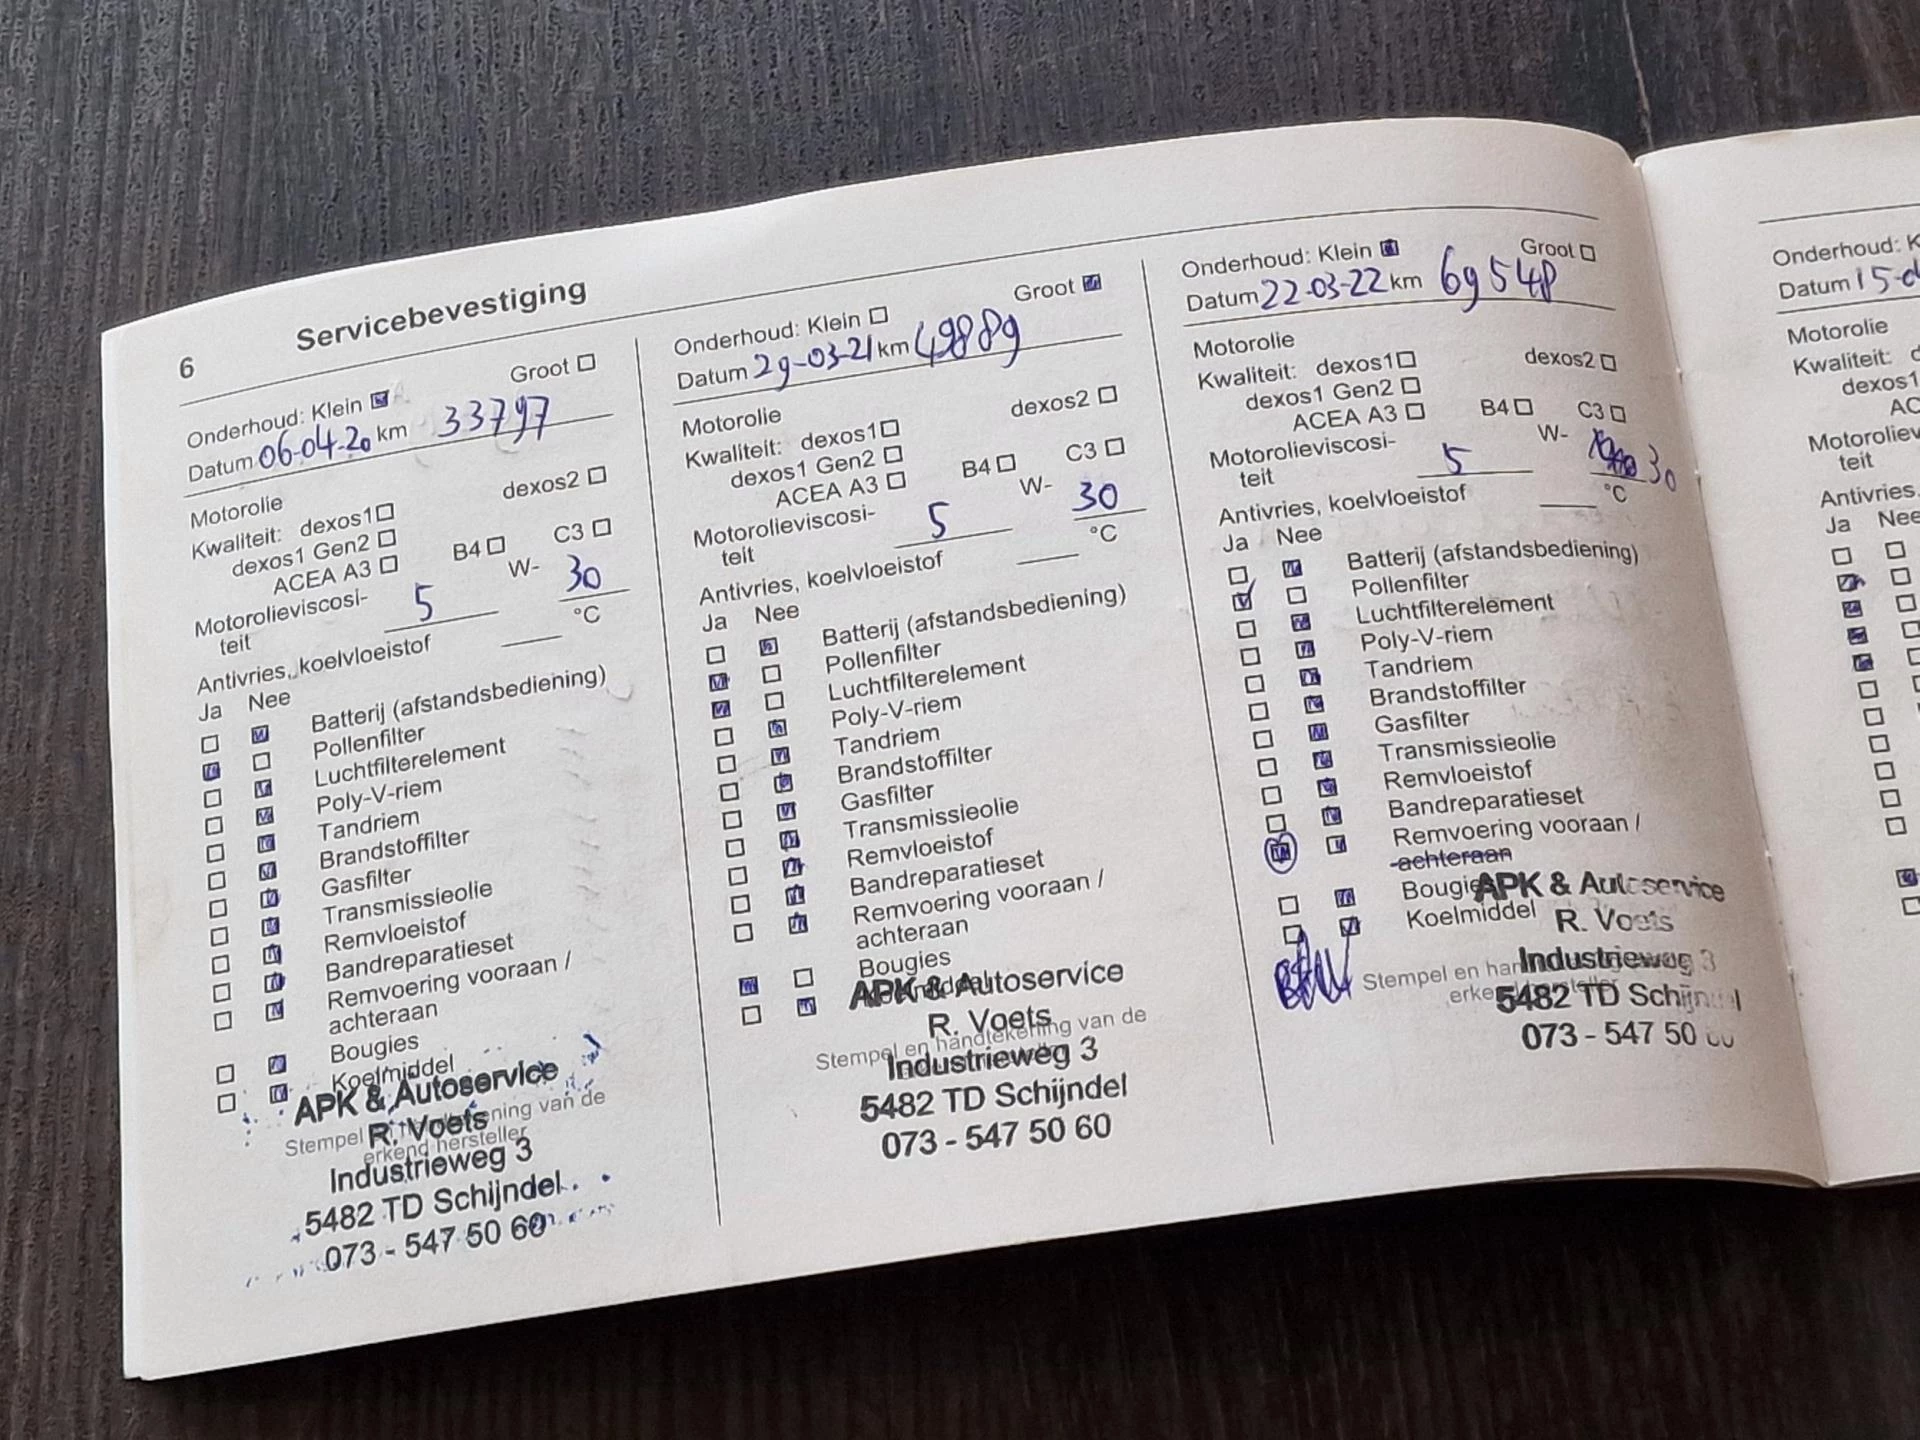 6 Servicebevestiging
Onderhoud: Klein Groot
Datum 06-04-20 km 33797
Motorolie
Kwaliteit: dexos1 dexos2
dexos1 Gen2
ACEA A3 B4 C3
Motorolieviscosi- 5 W- 30
teit
Antivries, koelvloeistof °C
Ja Nee
Batterij (afstandsbediening)
Pollenfilter
Luchtfilterelement
Poly-V-riem
Tandriem
Brandstoffilter
Gasfilter
Transmissieolie
Remvloeistof
Bandreparatieset
Remvoering vooraan /
achteraan
Bougies
Koelmiddel
APK & Autoservice
R. Voets
Stempel en handtekening van de
erkend hersteller
Industrieweg 3
5482 TD Schijndel
073 - 547 50 60
Onderhoud: Klein Groot
Datum 29-03-21 km 49889
Motorolie
Kwaliteit: dexos1 dexos2
dexos1 Gen2
ACEA A3 B4 C3
Motorolieviscosi- 5 W- 30
teit
Antivries, koelvloeistof °C
Ja Nee
Batterij (afstandsbediening)
Pollenfilter
Luchtfilterelement
Poly-V-riem
Tandriem
Brandstoffilter
Gasfilter
Transmissieolie
Remvloeistof
Bandreparatieset
Remvoering vooraan /
achteraan
Bougies
Koelmiddel
APK & Autoservice
R. Voets
Stempel en handtekening van de
Industrieweg 3
5482 TD Schijndel
073 - 547 50 60
Onderhoud: Klein Groot
Datum 22-03-22 km 69548
Motorolie
Kwaliteit: dexos1 dexos2
dexos1 Gen2
ACEA A3 B4 C3
Motorolieviscosi- 5 W- 30
teit
Antivries, koelvloeistof °C
Ja Nee
Batterij (afstandsbediening)
Pollenfilter
Luchtfilterelement
Poly-V-riem
Tandriem
Brandstoffilter
Gasfilter
Transmissieolie
Remvloeistof
Bandreparatieset
Remvoering vooraan /
achteraan
Bougies
Koelmiddel
APK & Autoservice
R. Voets
Stempel en
erkend hersteller
Industrieweg 3
5482 TD Schijndel
073 - 547 50 60
Onderhoud: K
Datum 15-0
Motorolie
Kwaliteit: d
dexos1
AC
Motoroliev
teit
Antivries,
Ja Nee